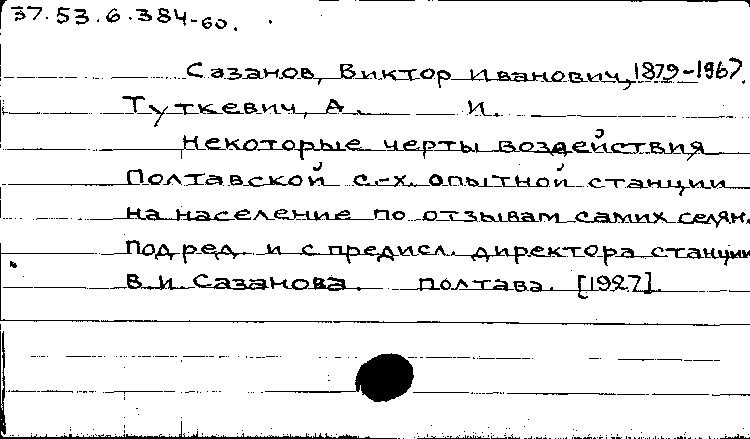 37.53.6.384-60.
Сазанов, Виктор Иванович, 1879-1967.
Туткевич, А. И.
Некоторые черты воздействия
Полтавской с.-х. опытной станции
на население по отзывам самих селян.
Под ред. и с предисл. директора станции
В.И. Сазанова. Полтава. [1927].